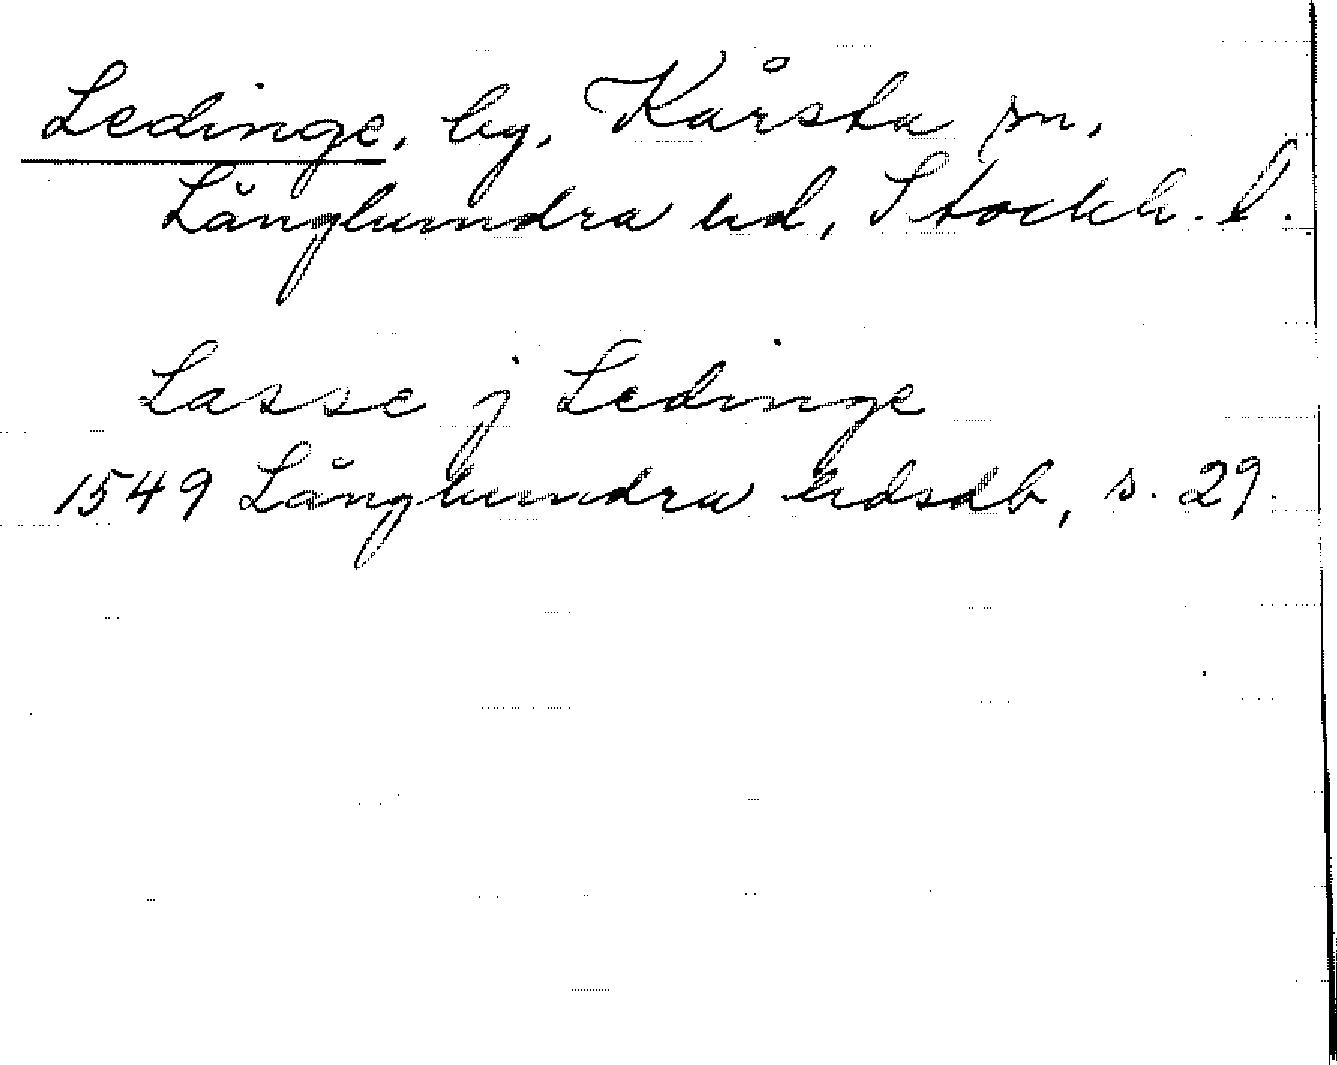 Ledinge, by, Kårsta sn,
Långhundra hd, Stockh. l.
Lasse j Ledinge
1549 Långhundra hdsdb, s. 29.